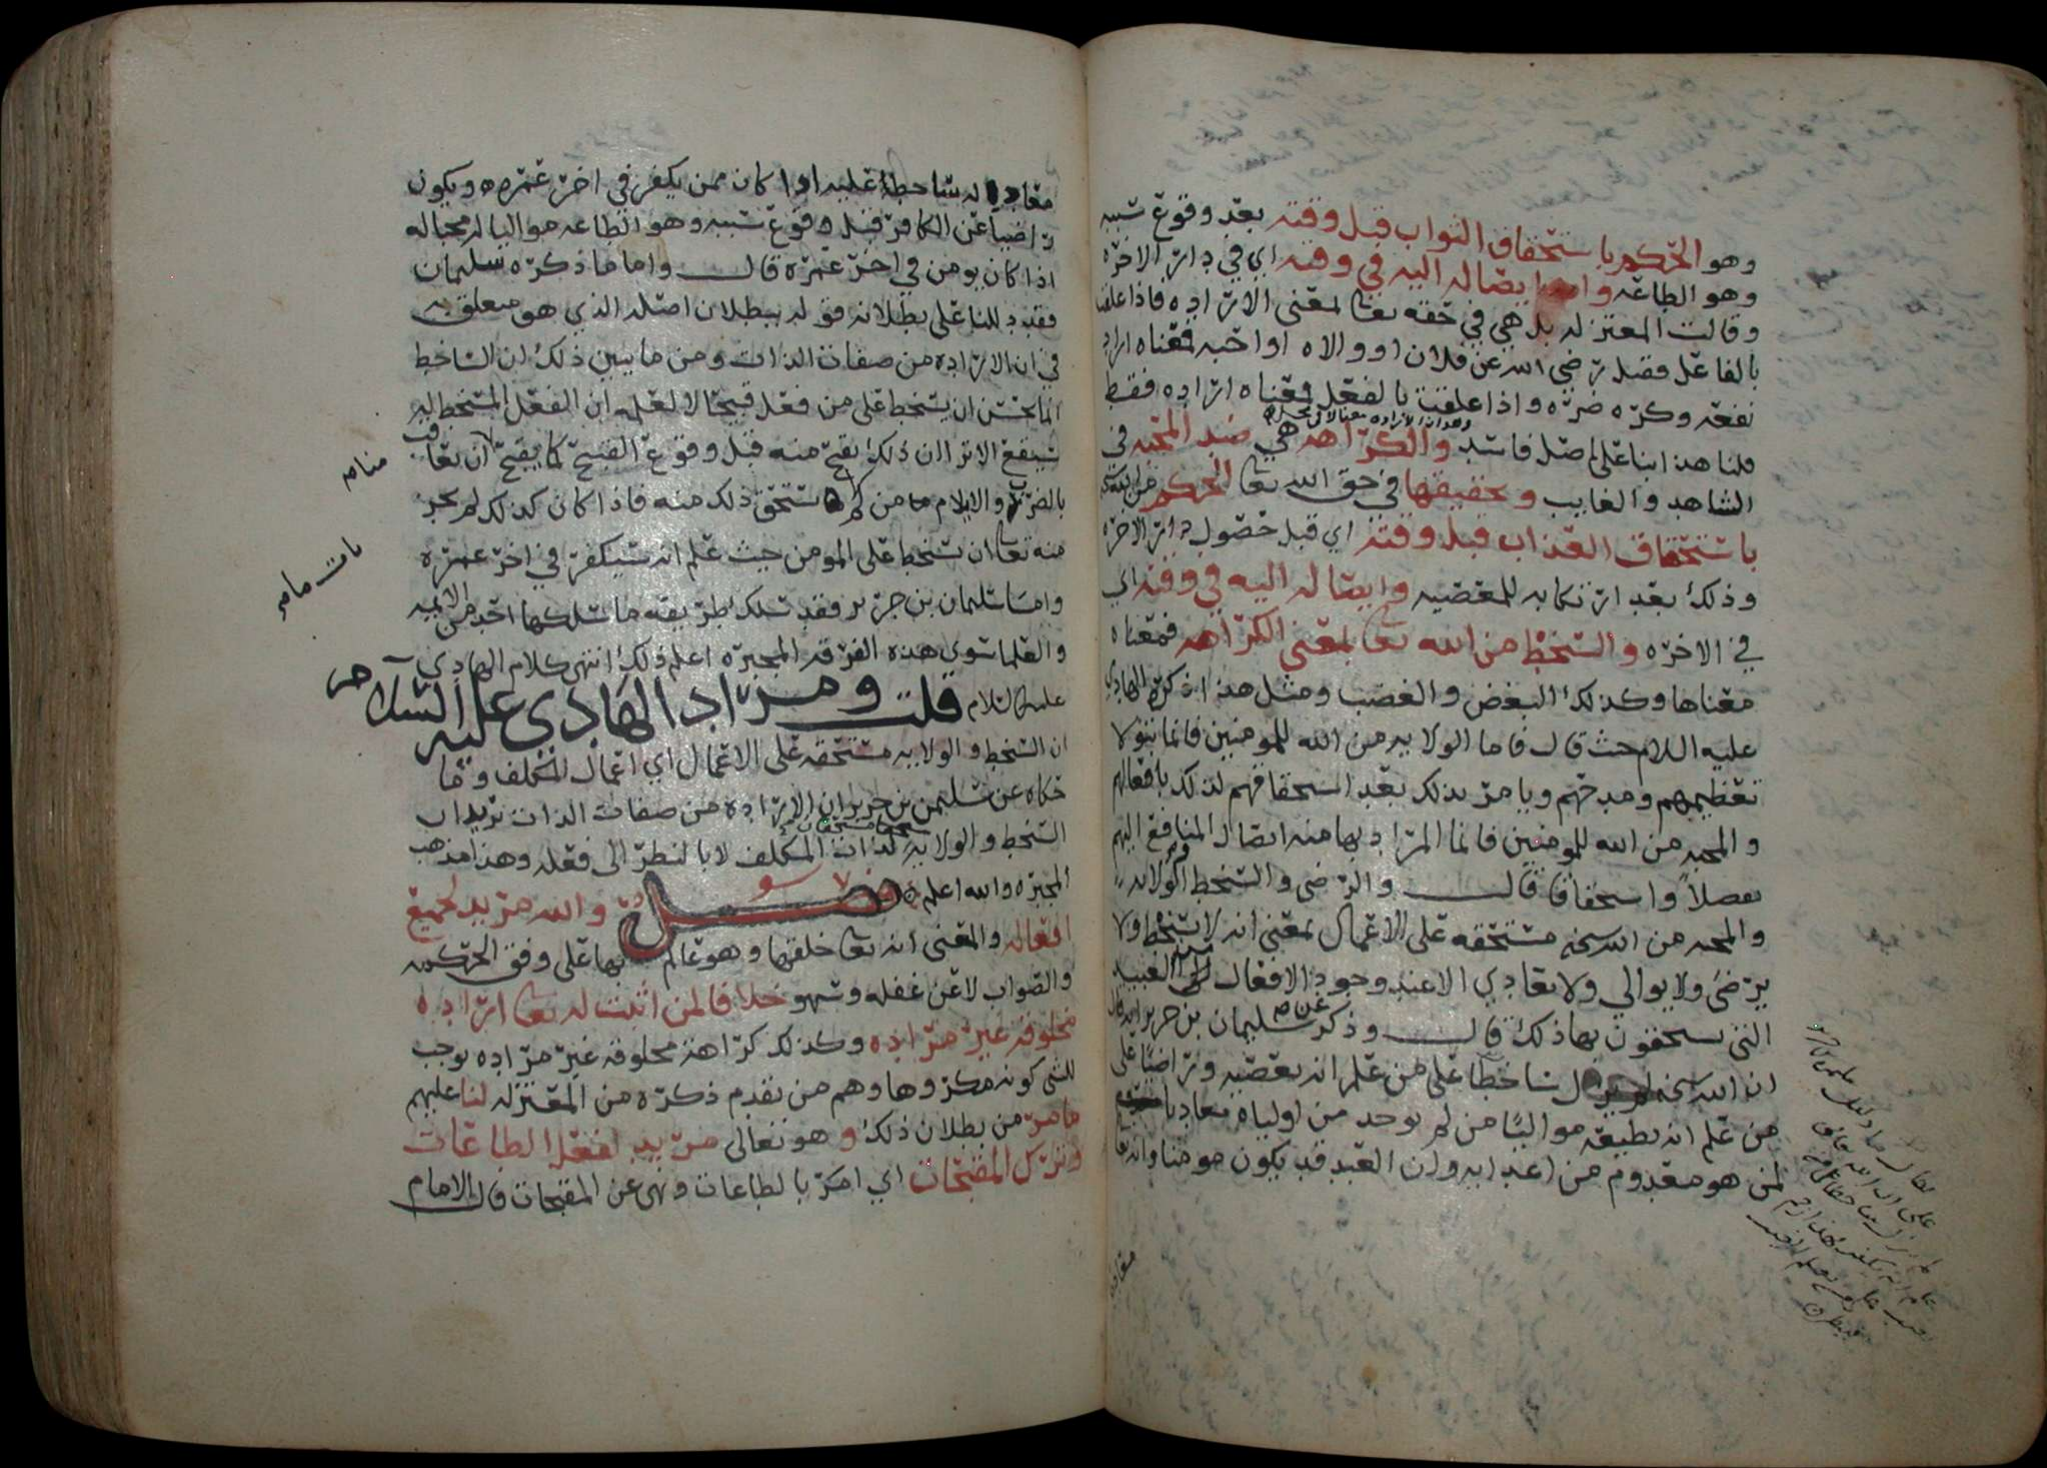 وهو الحكم باستحقاق الثواب قبل وقته بعد وقوع سببه
وهو الطاعه وايصاله اليه في وقته اي في دار الاخره
وقالت المعتزله بل هي في حقه تعا لمعنى الاراده فاذا علقت
بالفاعل فقيل رضي الله عن فلان او والاه او احبه فمعناه اراد
نفعه وكره ضره واذا علقت بالفعل فمعناه اراده فقط
قلنا هذا بنا على اصل فاسد والكراهه هي ضد المحبه في
الشاهد والغايب وحقيقتها في حق الله تعا الحكم من الله
باستحقاق العذاب قبل وقته اي قبل حصول دار الاخره
وذلك بعد ارتكابه للمعصيه وايصاله اليه في وقته اي
في الاخره والسخط من الله تعا بمعنى الكراهه فمعناه
معناها وكذلك البغض والغضب ومثل هذا ذكره الهادي
عليه السلام حيث قال فاما الولايه من الله للمومنين فانما هو
تعظيمهم ومدحهم ويامر بذلك بعد استحقاقهم لذلك بافعالهم
والمحبه من الله للمومنين فانما المراد بها منه ايصال المنافع اليهم
تفضلا واستحقاقا قال والرضى والسخط والولايه
والمحبه من الله سبحنه مستحقه على الاعمال بمعنى انه لا يسخط ولا
يرضى ولا يوالي ولا يعادي الا عند وجود الافعال من العبيد
التي يستحقون بها ذلك قال وذكر عن سليمان بن جرير انه قال
ان الله سبحنه لم يزل ساخطا على من علم انه يعصيه وراضيا على
من علم انه يطيعه مواليا من لم يوجد من اوليائه معاديا
لمن هو معدوم من اعدائه وان العبد قد يكون مومنا والله تعا
معاديا له ساخطا عليه اذا كان ممن يكفر في اخر عمره ويكون
راضيا عن الكافر قبل وقوع سببه وهو الطاعه مواليا له محبا له
اذا كان يومن في اخر عمره قال واما ما ذكره سليمان
فقد دللنا على بطلانه قوله ببطلان اصله الذي هو متعلق به
في ان الاراده من صفات الذات ومن ما يبين ذلك ان الساخط
انما يحسن ان يسخط على من فعل قبيحا لا لعلمه ان الفعل المسخط له
سيقع الا ترا ان ذلك يقبح منه قبل وقوع القبيح كما يقبح ان يعاقب
بالضرب والايلام من لم يستحق ذلك منه فاذا كان كذلك لم يجز
منه تعا ان يسخط على المومن حيث علم انه سيكفر في اخر عمره
واما سليمان بن جرير فقد سلك طريقه ما سلكها احد من الائمه
والعلما سوى هذه الفرقه المجبره اعلم ذلك انتهى كلام الهادي
عليه السلام قلت ومراد الهادي عليه السلام
ان السخط والولايه مستحقه على الاعمال اي اعمال المكلف وما
حكاه عن سليمن بن جرير ان الاراده من صفات الذات يريد ان
السخط والولايه مستحقان لذات المكلف لا بالنظر الى فعله وهذا مذهب
المجبره والله اعلم فصل والله مريد لجميع
افعاله والمعنى انه تعا خلقها وهو عالم بها على وفق الحكمه
والصواب لا عن غفله وسهو خلافا لمن اثبت له تعا اراده
مخلوقه غير مراده وكذلك كراهه مخلوقه غير مراده يوجب
للشي كونه مكروها وهم من تقدم ذكره من المعتزله لنا عليهم
ما مر من بطلان ذلك وهو تعالى مريد لفعل الطاعات
وترك المقبحات اي امر بالطاعات ونهى عن المقبحات قال الامام